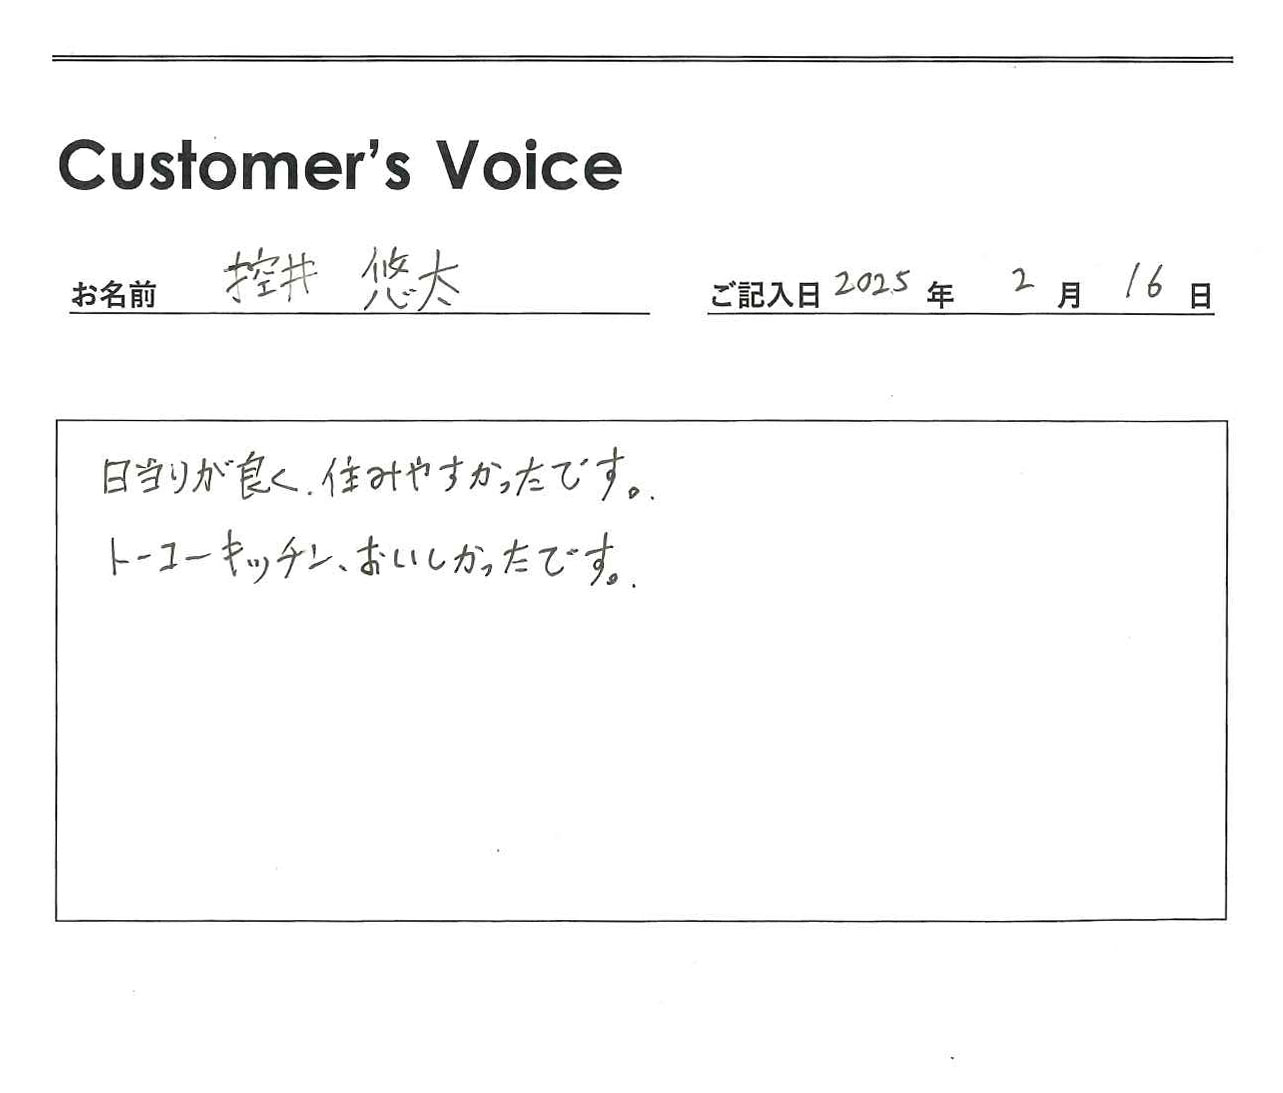 Customer's Voice
お名前 控井 悠太 ご記入日 2025 年 2 月 16 日
日当りが良く、住みやすかったです。
トーコーキッチン、おいしかったです。